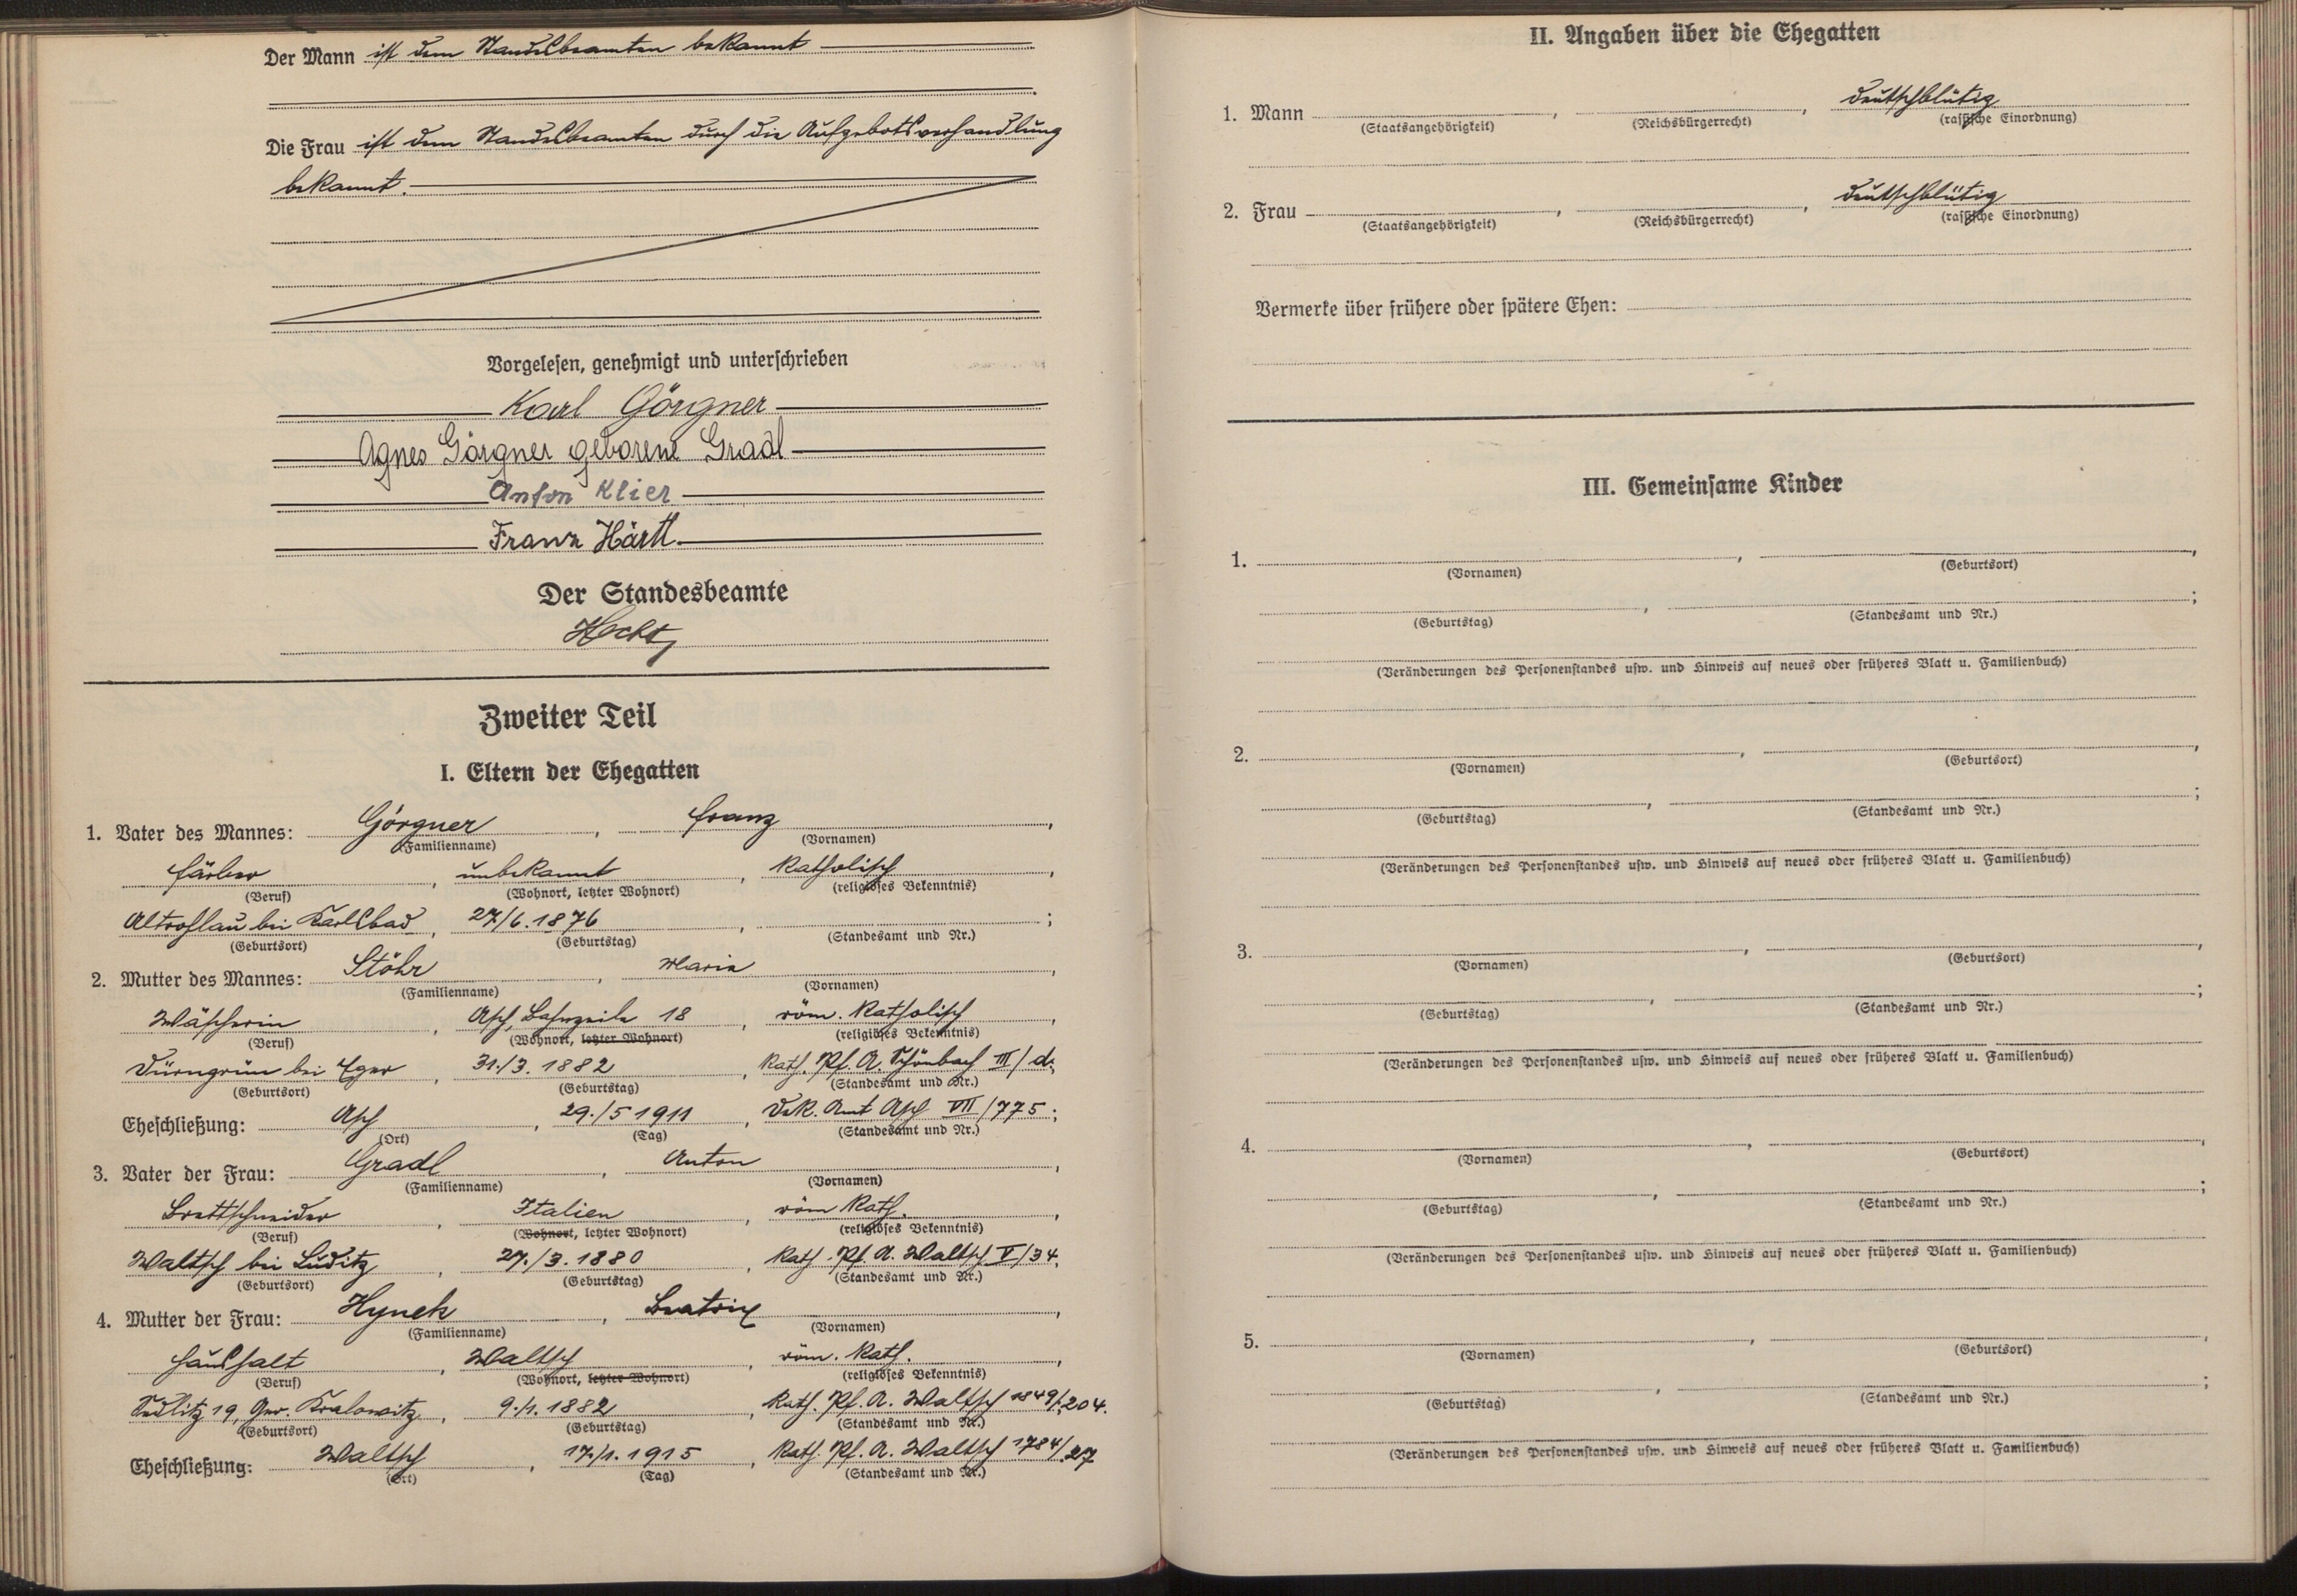 Der Mann ist dem Standesbeamten bekannt
Die Frau ist dem Standesbeamten durch die Aufgebotsverhandlung
bekannt.
Vorgelesen, genehmigt und unterschrieben
Karl Görgner
Agnes Görgner geborene Gradl
Anton Klier
Franz Härtl
Der Standesbeamte
Zweiter Teil
I. Eltern der Ehegatten
1. Vater des Mannes: Görgner, Franz,
(Familienname) (Vornamen)
Färber, unbekannt, katholisch,
(Beruf) (Wohnort, letzter Wohnort) (religiöses Bekenntnis)
Altrohlau bei Karlsbad, 27/6.1876, ;
(Geburtsort) (Geburtstag) (Standesamt und Nr.)
2. Mutter des Mannes: Stöhr, Maria,
(Familienname) (Vornamen)
Wäscherin, Asch, Bahnzeile 18, röm. katholisch,
(Beruf) (Wohnort, letzter Wohnort) (religiöses Bekenntnis)
Dürngrün bei Eger, 31./3.1882, Kath. Pf. A. Schönbach III/d.;
(Geburtsort) (Geburtstag) (Standesamt und Nr.)
Eheschließung: Asch, 29./5 1911, Dek. Amt Asch VII/775;
(Ort) (Tag) (Standesamt und Nr.)
3. Vater der Frau: Gradl, Anton,
(Familienname) (Vornamen)
Brettschneider, Italien, röm kath.,
(Beruf) (Wohnort, letzter Wohnort) (religiöses Bekenntnis)
Waltsch bei Luditz, 27./3.1880, Kath. Pf. A. Waltsch V/34.
(Geburtsort) (Geburtstag) (Standesamt und Nr.)
4. Mutter der Frau: Hynek, Beatrix,
(Familienname) (Vornamen)
Haushalt, Waltsch, röm. kath.,
(Beruf) (Wohnort, letzter Wohnort) (religiöses Bekenntnis)
19, Ger. Kralowitz, 9./1.1882, Kath. Pf. A. Waltsch 1849/204.
(Geburtsort) (Geburtstag) (Standesamt und Nr.)
Eheschließung: Waltsch, 17./1.1915, Kath. Pf. A. Waltsch 1784/27
(Ort) (Tag) (Standesamt und Nr.)
II. Angaben über die Ehegatten
1. Mann , , deutschblütig
(Staatsangehörigkeit) (Reichsbürgerrecht) (rassische Einordnung)
2. Frau , , deutschblütig
(Staatsangehörigkeit) (Reichsbürgerrecht) (rassische Einordnung)
Vermerke über frühere oder spätere Ehen:
III. Gemeinsame Kinder
1. , ,
(Vornamen) (Geburtsort)
, ;
(Geburtstag) (Standesamt und Nr.)
(Veränderungen des Personenstandes usw. und Hinweis auf neues oder früheres Blatt u. Familienbuch)
2. , ,
(Vornamen) (Geburtsort)
, ;
(Geburtstag) (Standesamt und Nr.)
(Veränderungen des Personenstandes usw. und Hinweis auf neues oder früheres Blatt u. Familienbuch)
3. , ,
(Vornamen) (Geburtsort)
, ;
(Geburtstag) (Standesamt und Nr.)
(Veränderungen des Personenstandes usw. und Hinweis auf neues oder früheres Blatt u. Familienbuch)
4. , ,
(Vornamen) (Geburtsort)
, ;
(Geburtstag) (Standesamt und Nr.)
(Veränderungen des Personenstandes usw. und Hinweis auf neues oder früheres Blatt u. Familienbuch)
5. , ,
(Vornamen) (Geburtsort)
, ;
(Geburtstag) (Standesamt und Nr.)
(Veränderungen des Personenstandes usw. und Hinweis auf neues oder früheres Blatt u. Familienbuch)